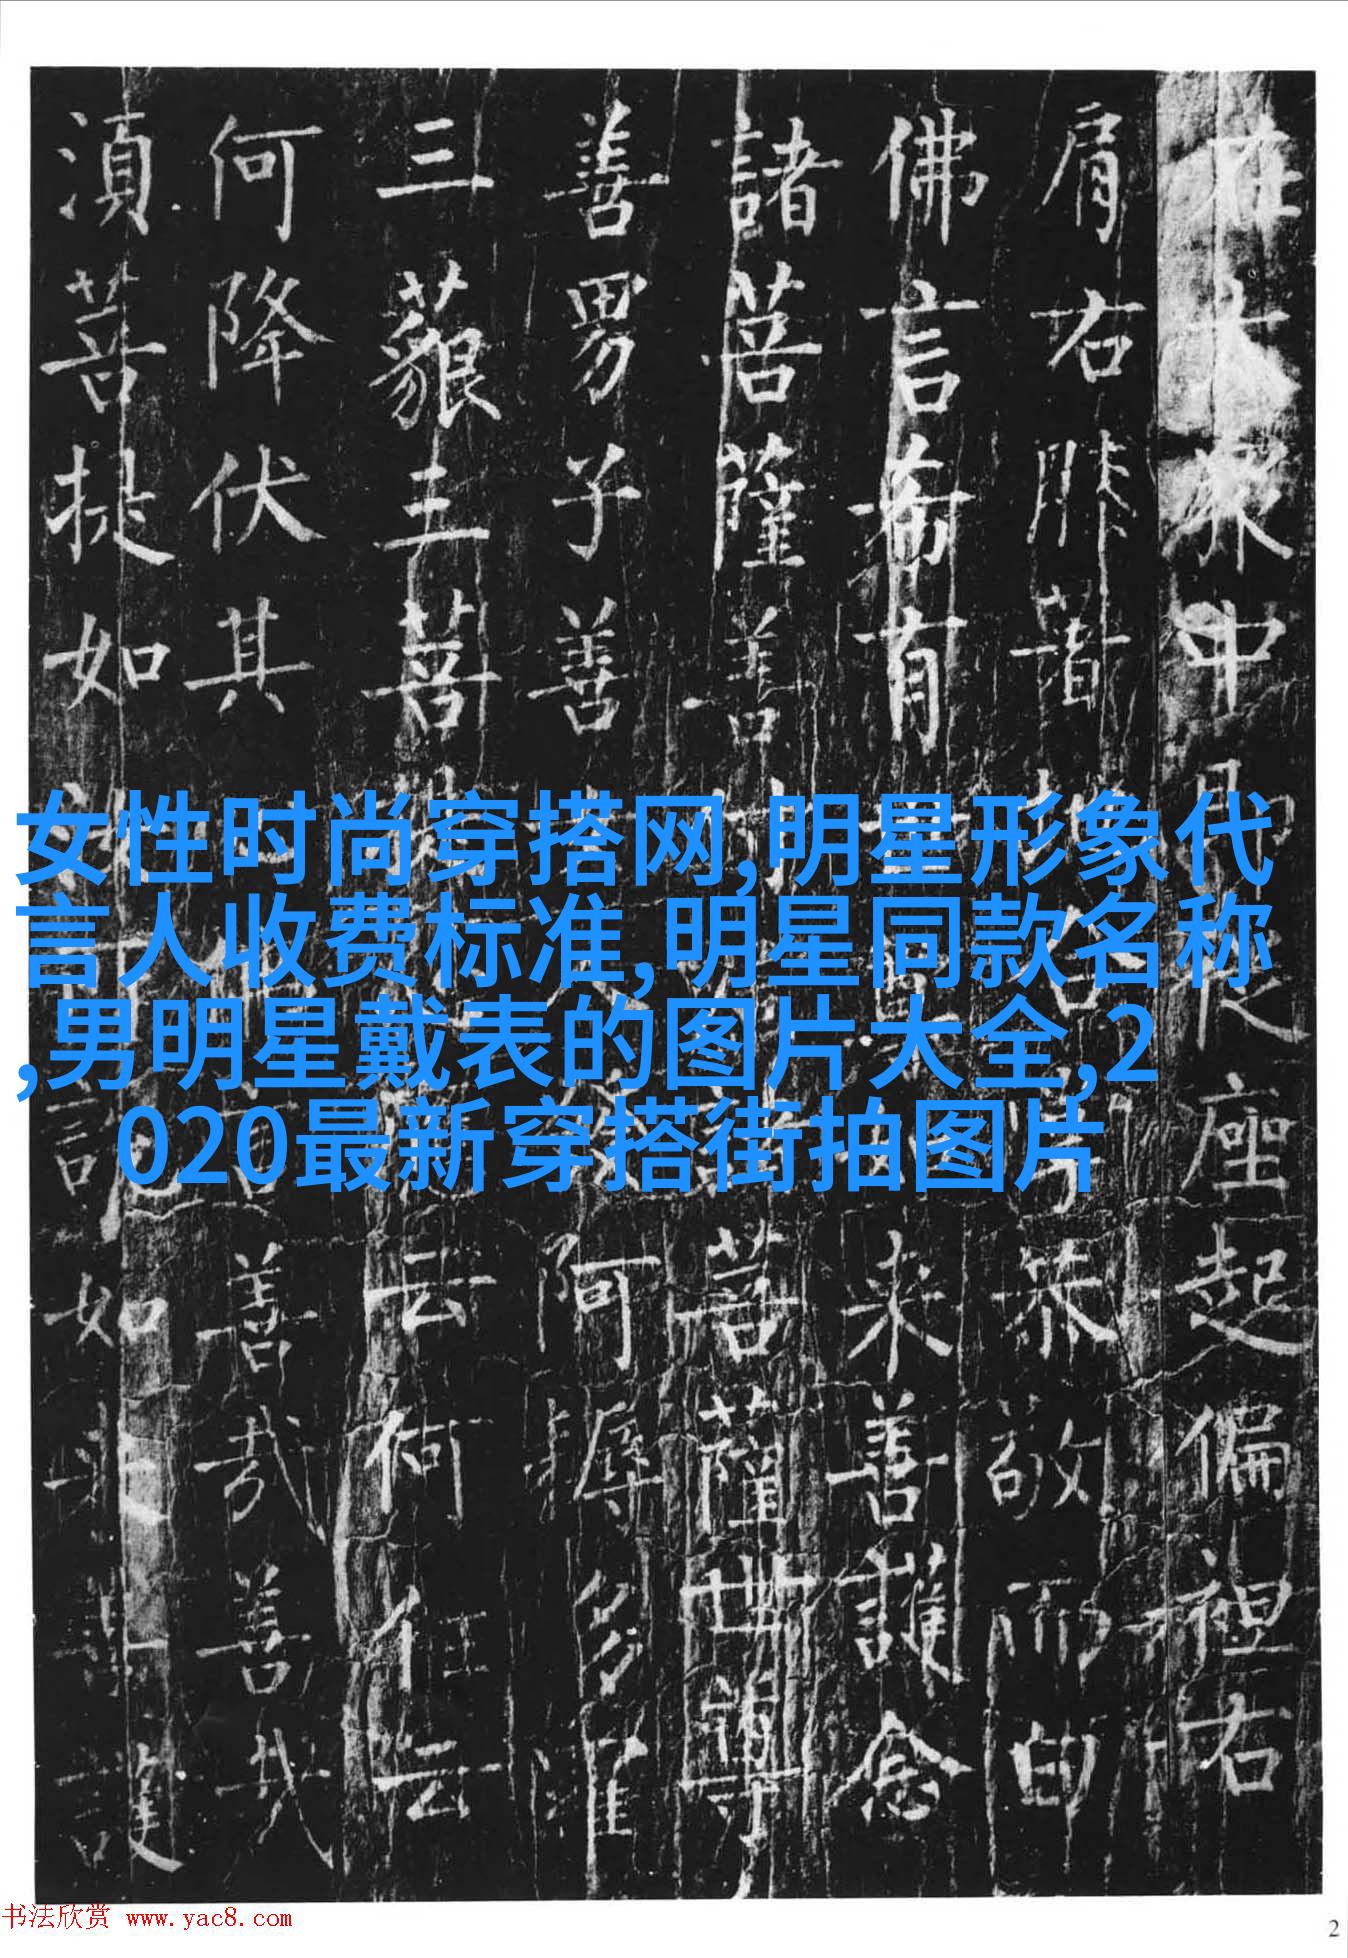 在大眾中即從座起偏袒右
肩右膝著地合恭敬而白
佛言希有来善護念
諸菩薩善菩薩世尊
善男子善阿耨多羅
三藐三菩云何住云
何降伏其善哉善哉
湏菩提如說如来善護
女性时尚穿搭网,明星形象代
言人收费标准,明星同款名称
,男明星戴表的图片大全,2
020最新穿搭街拍图片
书法欣赏 www.yac8.com
2